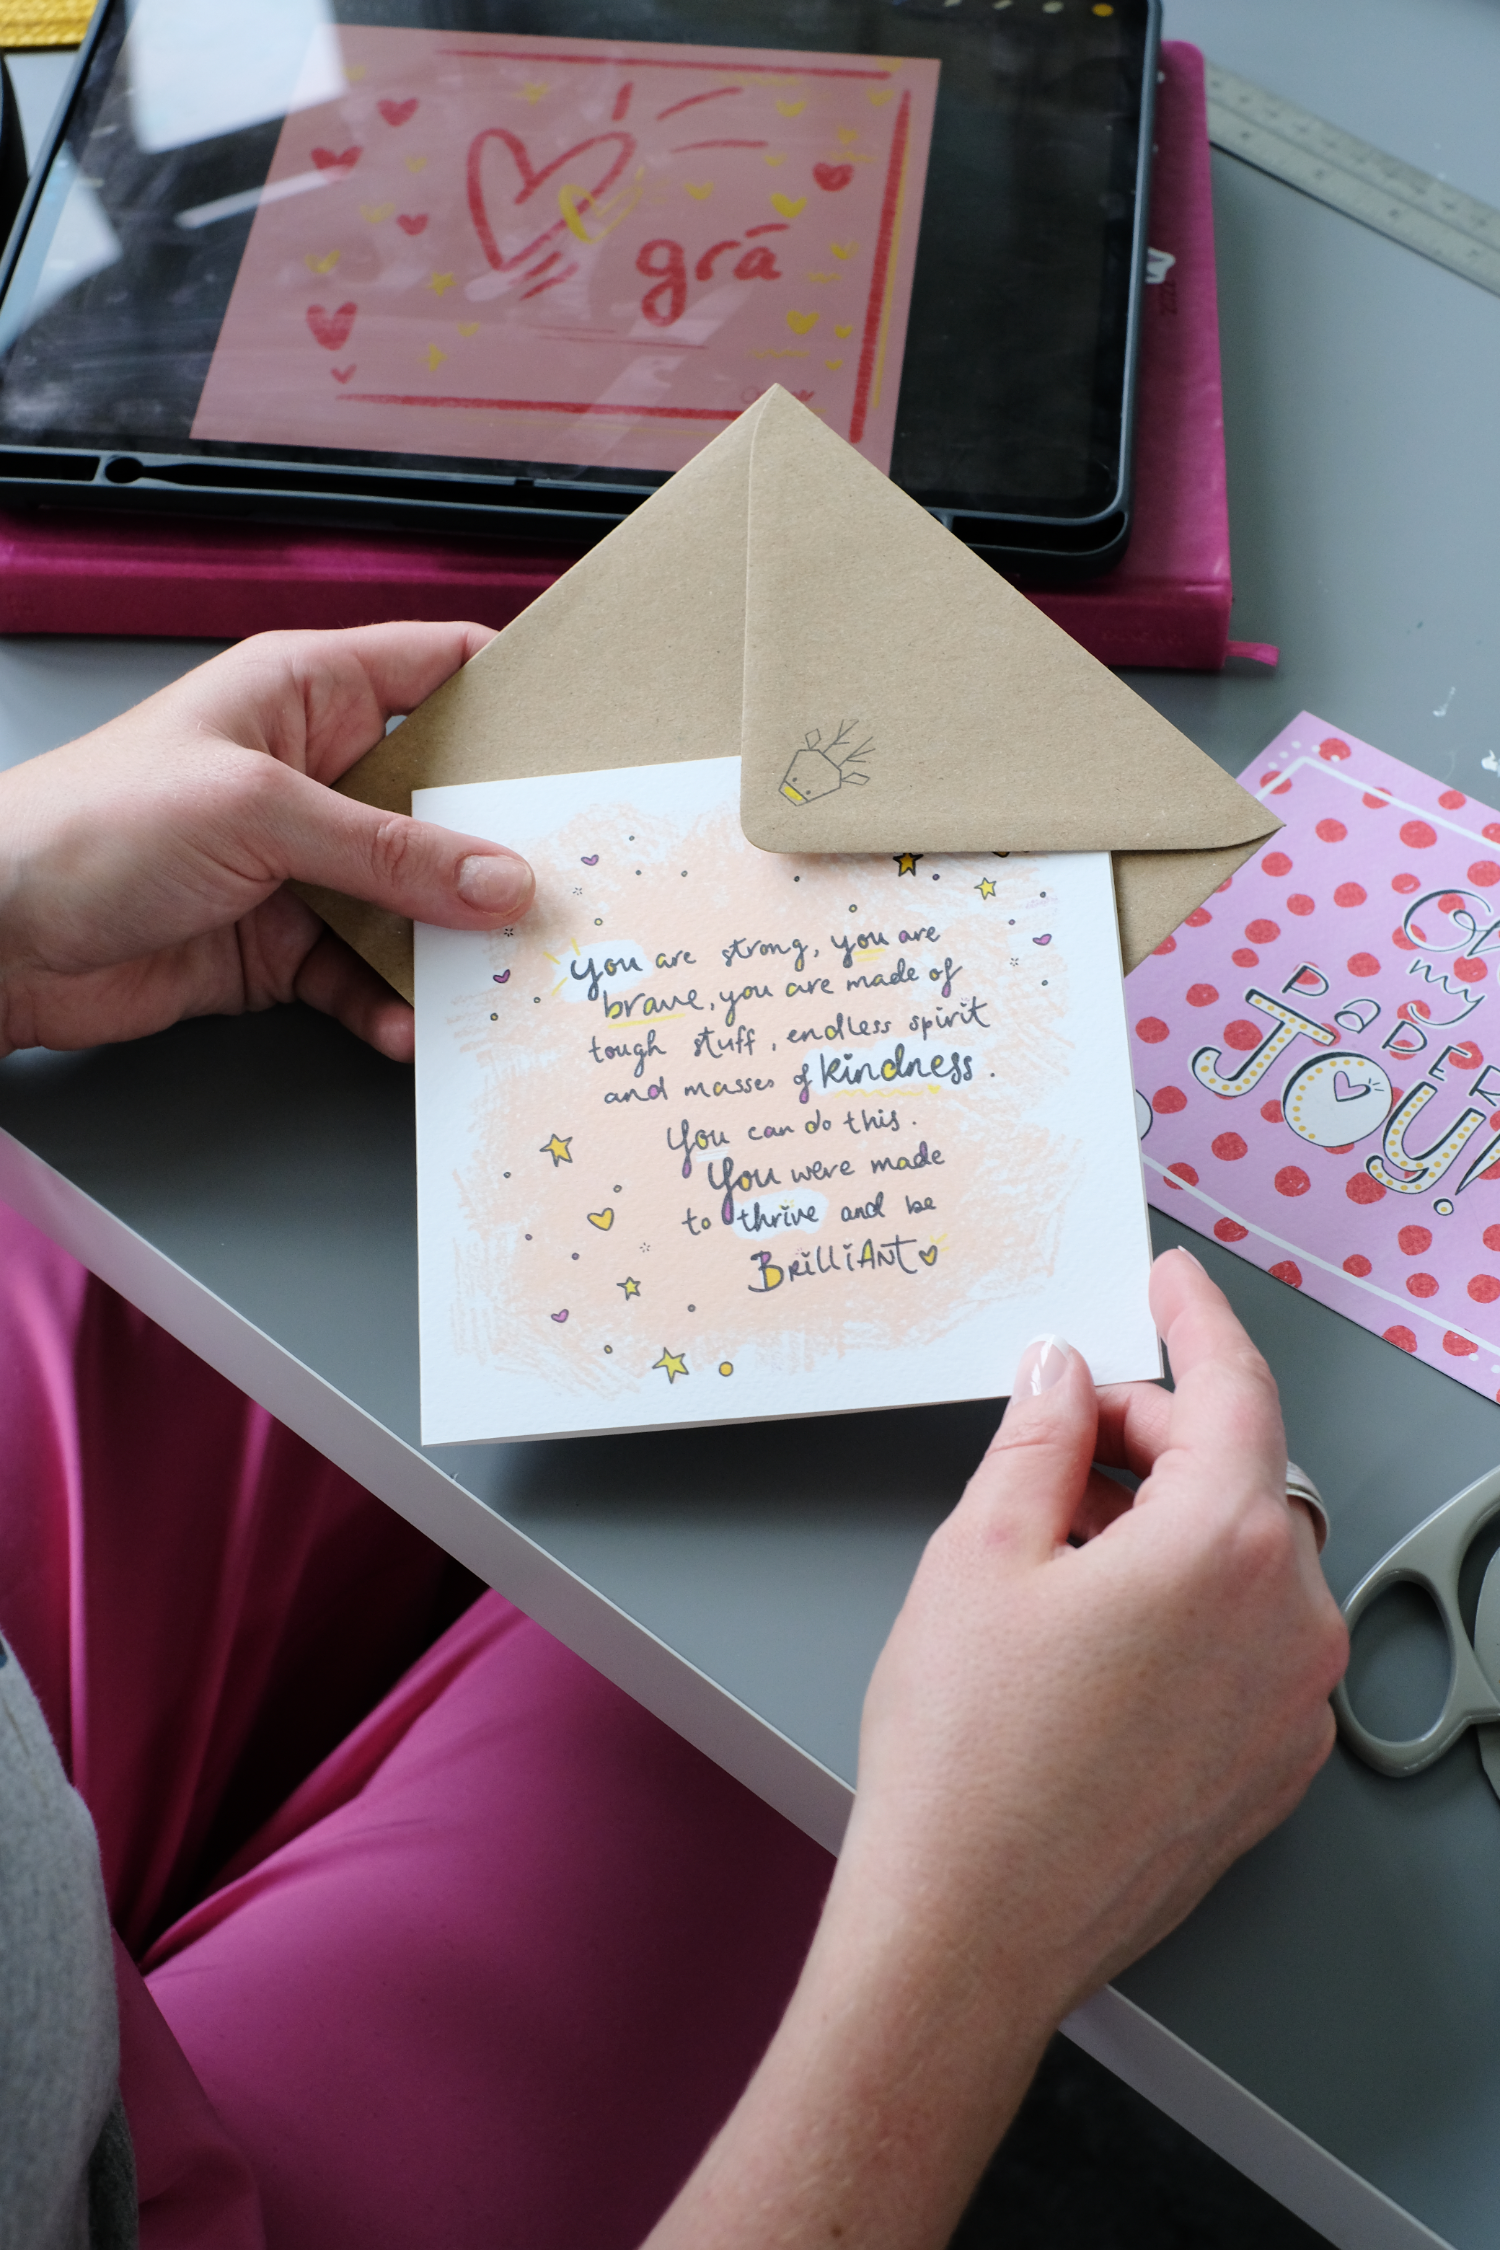 grá
you are strong, you are
brave, you are made of
tough stuff, endless spirit
and masses of kindness.
You can do this.
You were made
to thrive and be
BrilliANT
Oh
my
PaDER
JOY!